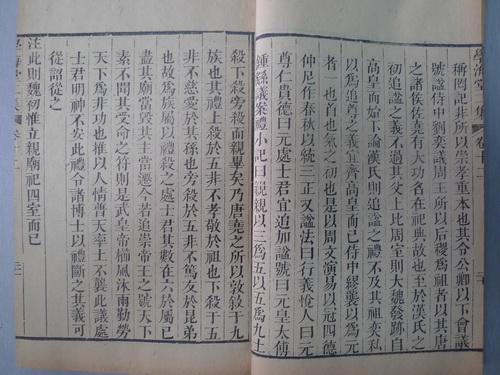 學海堂二集 卷十二
稱罔記非所以崇孝重本也其令公卿以下會議
號諡侍中劉奕議周王所以后稷為祖者以其唐
之諸侯佐堯有大功名在祀典故也至於漢氏之
初追諡之禮不過其父上比周室則大魏發跡自
高皇而始下論漢氏則追諡之禮不及其祖奕私
以為追尊之義宜齊高皇而已侍中繆襲以為元
者一也首也氣之初也是以周文演易以冠四德
仲尼作春秋以統三正又諡法曰行義悅人曰元
尊仁貴德曰元處士君宜追加諡號曰元皇太傅
鍾繇議案禮小記曰親親以三為五以五為九上
殺下殺旁殺而親畢矣乃唐堯之所以敦敘于九
族也其禮上殺於五非不孝敬於祖也下殺于五
非不慈愛於其孫也旁殺於五非不篤友於昆弟
也故為族屬以禮殺之處士君其數在六於屬已
盡其廟當毀其主當遷今若追崇帝王之號天下
素不聞其受命之符則是武皇帝櫛風沐雨勤勞
天下為非功也推以人情普天率土不襲此議處
士君明神不安此禮令諸博士以禮斷之其義可
從詔從之
注此則魏初惟立親廟祀四室而已